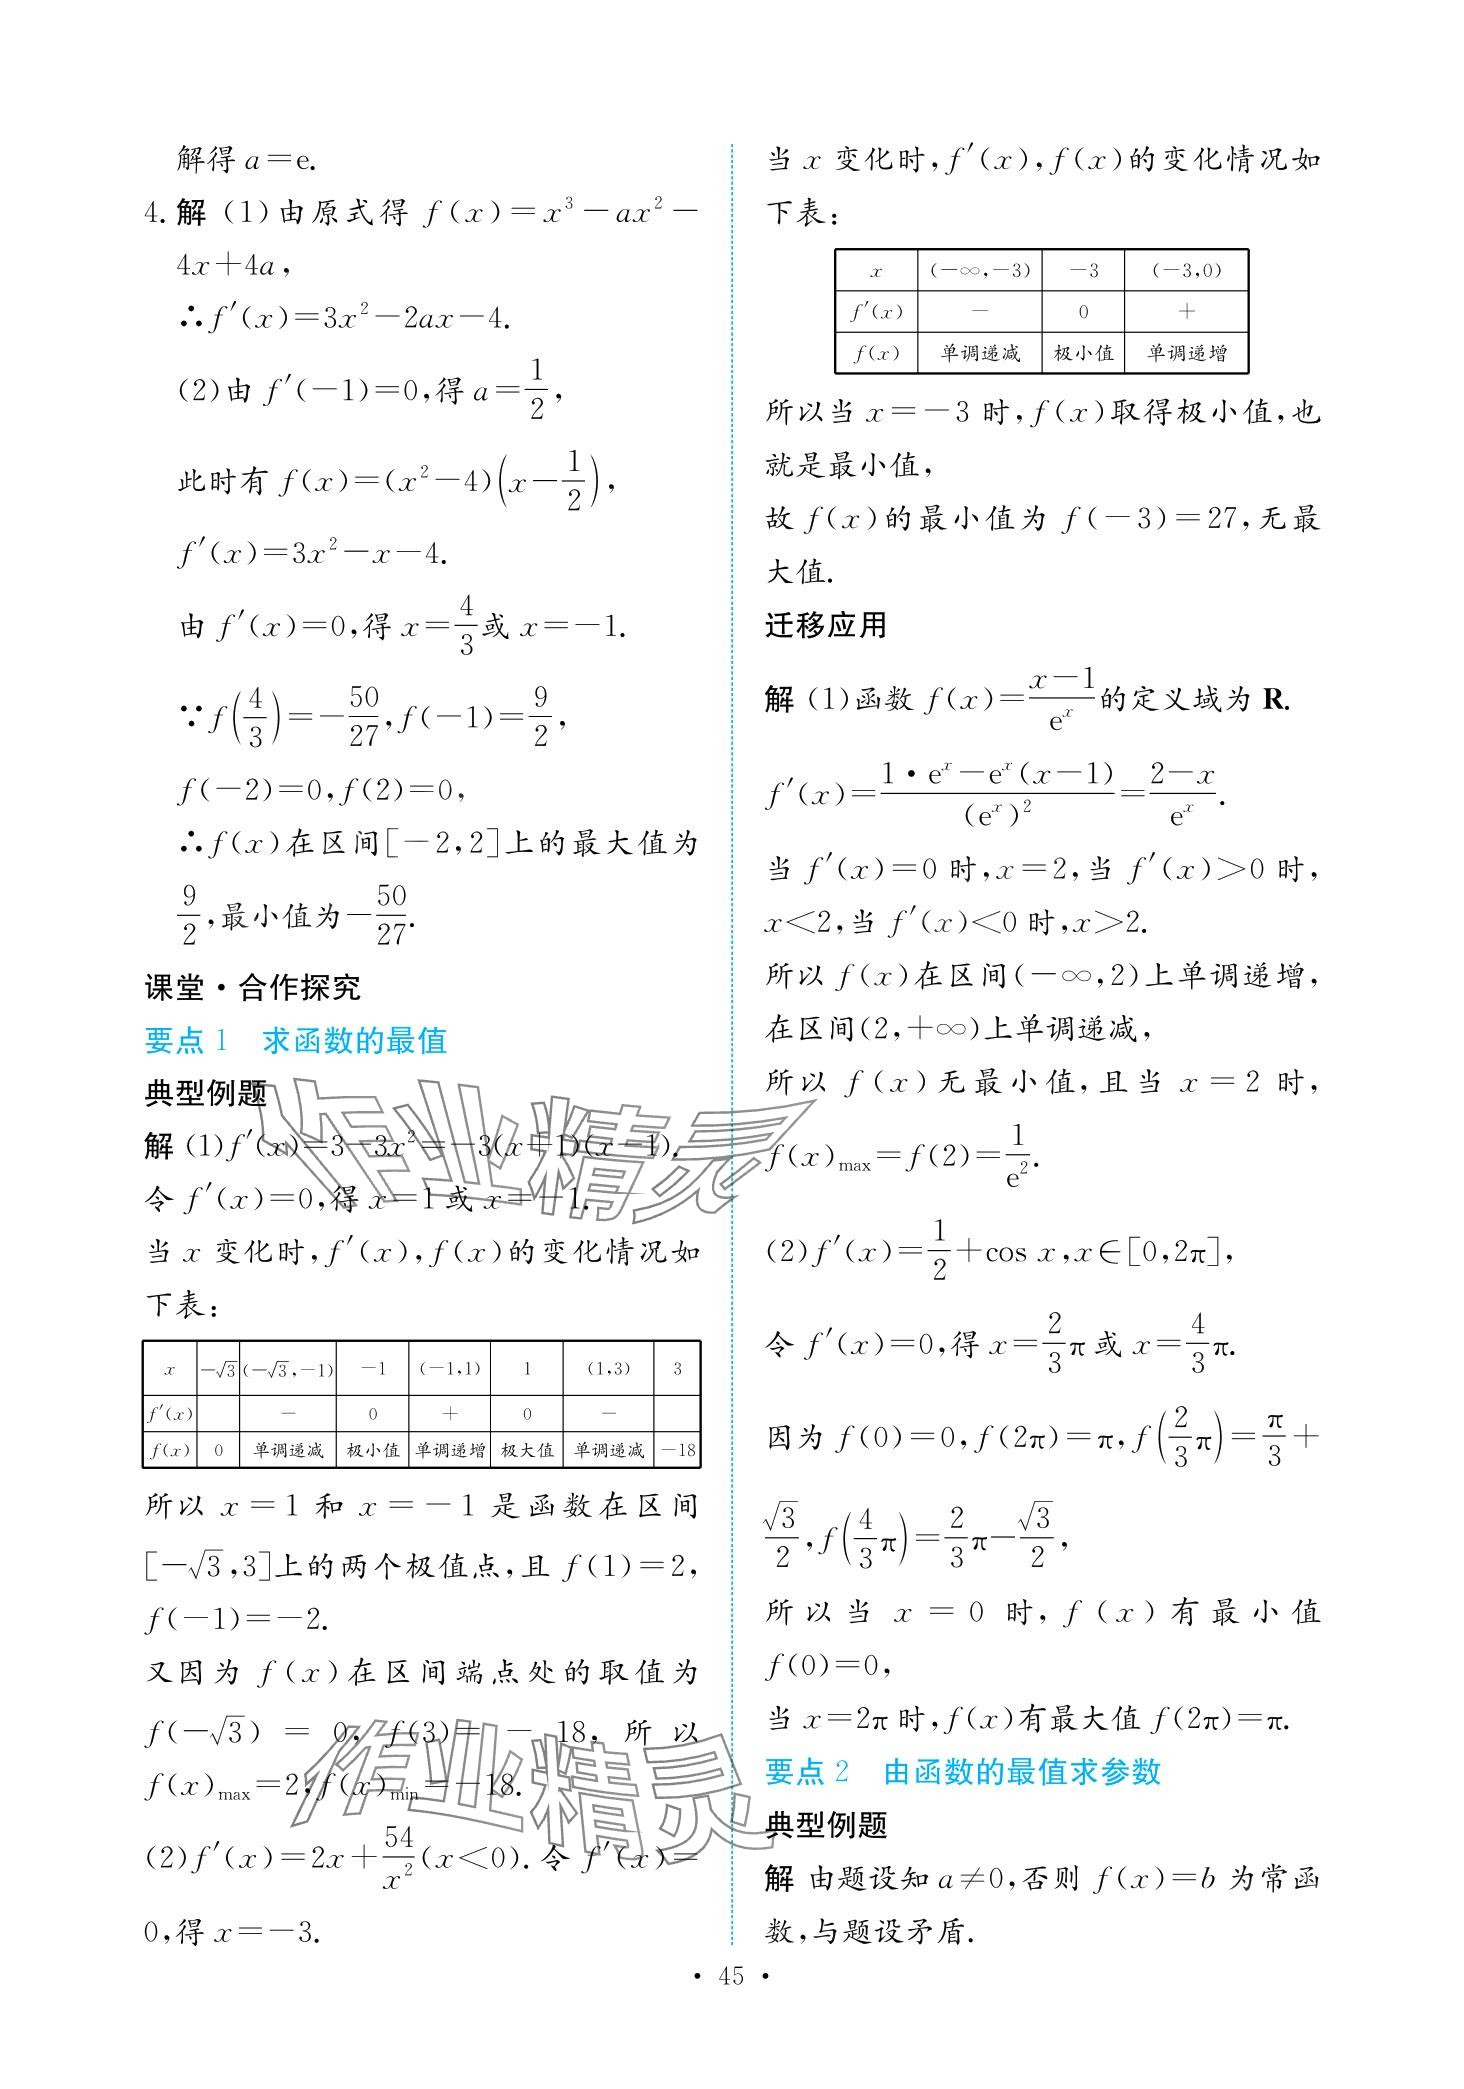 解得 a＝e.
4. 解 (1)由原式得 f(x)＝x³－ax²－
4x＋4a，
∴f′(x)＝3x²－2ax－4.
(2)由 f′(－1)＝0,得 a＝1/2，
此时有 f(x)＝(x²－4)(x－1/2)，
f′(x)＝3x²－x－4.
由 f′(x)＝0,得 x＝4/3或 x＝－1.
∵f(4/3)＝－50/27,f(－1)＝9/2，
f(－2)＝0,f(2)＝0，
∴f(x)在区间[－2,2]上的最大值为
9/2,最小值为－50/27.
课堂·合作探究
要点 1 求函数的最值
典型例题
解 (1)f′(x)＝3－3x²＝－3(x＋1)(x－1).
令 f′(x)＝0,得 x＝1 或 x＝－1.
当 x 变化时,f′(x),f(x)的变化情况如
下表：
x －√3 (－√3,－1) －1 (－1,1) 1 (1,3) 3
f′(x) － 0 ＋ 0 －
f(x) 0 单调递减 极小值 单调递增 极大值 单调递减 －18
所以 x＝1 和 x＝－1 是函数在区间
[－√3,3]上的两个极值点,且 f(1)＝2,
f(－1)＝－2.
又因为 f(x)在区间端点处的取值为
f(－√3)＝0, f(3)＝－18, 所以
f(x)max＝2,f(x)min＝－18.
(2)f′(x)＝2x＋54/x²(x＜0).令 f′(x)＝
0,得 x＝－3.
当 x 变化时,f′(x),f(x)的变化情况如
下表：
x (－∞,－3) －3 (－3,0)
f′(x) － 0 ＋
f(x) 单调递减 极小值 单调递增
所以当 x＝－3 时,f(x)取得极小值,也
就是最小值，
故 f(x)的最小值为 f(－3)＝27,无最
大值.
迁移应用
解 (1)函数 f(x)＝(x－1)/eˣ的定义域为 R.
f′(x)＝(1·eˣ－eˣ(x－1))/(eˣ)²＝(2－x)/eˣ.
当 f′(x)＝0 时,x＝2,当 f′(x)＞0 时,
x＜2,当 f′(x)＜0 时,x＞2.
所以 f(x)在区间(－∞,2)上单调递增,
在区间(2,＋∞)上单调递减，
所以 f(x)无最小值,且当 x＝2 时,
f(x)max＝f(2)＝1/e².
(2)f′(x)＝1/2＋cos x,x∈[0,2π]，
令 f′(x)＝0,得 x＝2/3π 或 x＝4/3π.
因为 f(0)＝0,f(2π)＝π,f(2/3π)＝π/3＋
√3/2,f(4/3π)＝2/3π－√3/2，
所以当 x＝0 时, f(x)有最小值
f(0)＝0，
当 x＝2π 时,f(x)有最大值 f(2π)＝π.
要点 2 由函数的最值求参数
典型例题
解 由题设知 a≠0,否则 f(x)＝b 为常函
数,与题设矛盾.
· 45 ·
作业精灵
作业精灵